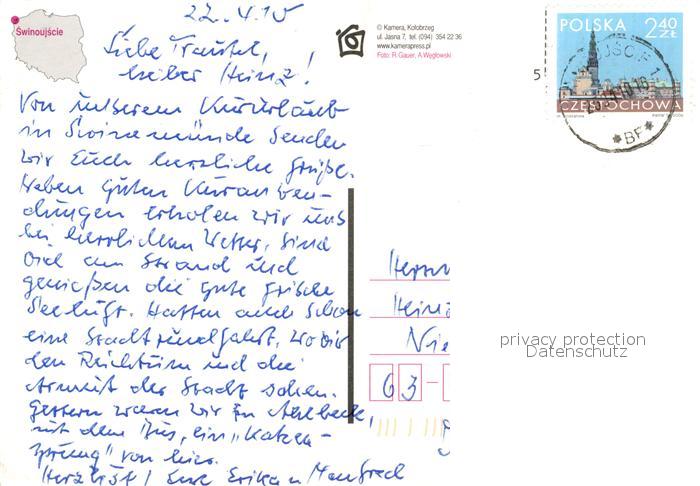 22.4.10
Świnoujście
Liebe Traudel,
lieber Heinz!
Von unserem Kururlaub
in Swinemünde senden
wir Euch herzliche Grüße.
Neben guten Kuranwen-
dungen erholen wir uns
bei herrlichem Wetter, sind
viel am Strand und
genießen die gute frische
Seeluft. Hatten auch schon
eine Stadtrundfahrt, wo wir
den Reichtum und die
Armut der Stadt sahen.
Gestern waren wir in Ahlbeck,
mit dem Bus, ein "Katzen-
sprung" von hier.
Herzlichst! Eure Erika u. Manfred
© Kamera, Kołobrzeg
ul. Jasna 7, tel. (094) 354 22 36
www.kamerapress.pl
Foto: R. Gauer, A. Węglowski
5
POLSKA 2,40
ZŁ
CZĘSTOCHOWA
*BF*
Herrn
Heinz
Nie
63-
privacy protection
Datenschutz